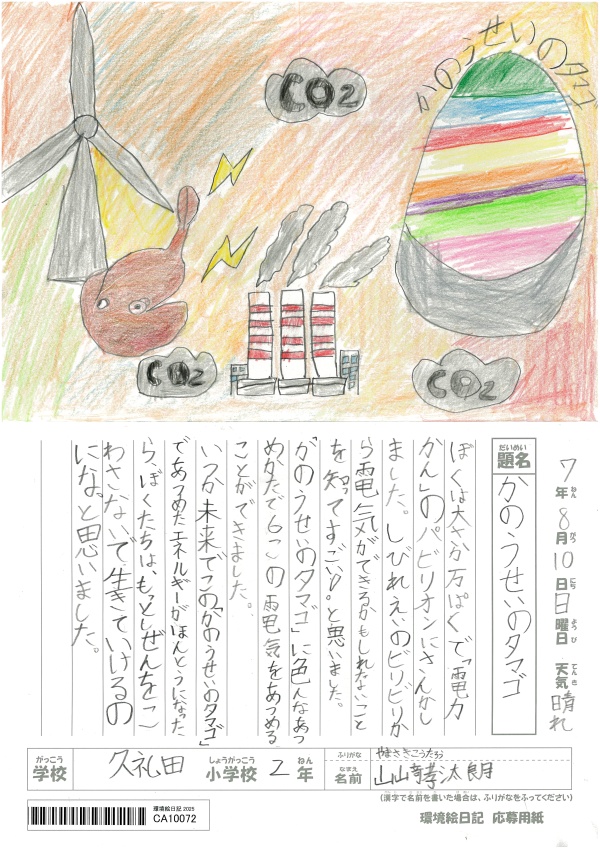 CO2
かのうせいのタマゴ
CO2
CO2
7年8月10日日曜日 天気 晴れ
ねん がつ にち ようび てんき
だいめい
題名
かのうせいのタマゴ
ぼくは大さか万ぱくで「電力
かん」のパビリオンにさんかし
ました。しびれえいのビリビリか
ら電気ができるかもしれないこと
を知ってすごい!。と思いました。
「かのうせいのタマゴ」に色んなあつ
めかたで6つの電気をあつめる
ことができました。
いつか未来でこの「かのうせいのタマゴ」
であつめたエネルギーがほんとうになった
ら、ぼくたちは、もっとしぜんをこ
わさないで生きていけるの
にな。と思いました。
がっこう しょうがっこう ねん
学校 久礼田 小学校 2年
ふりがな やまさきこうたろう
なまえ
名前 山﨑孝汰朗
(漢字で名前を書いた場合は、ふりがなをふってください)
環境絵日記 2025
CA10072
環境絵日記 応募用紙